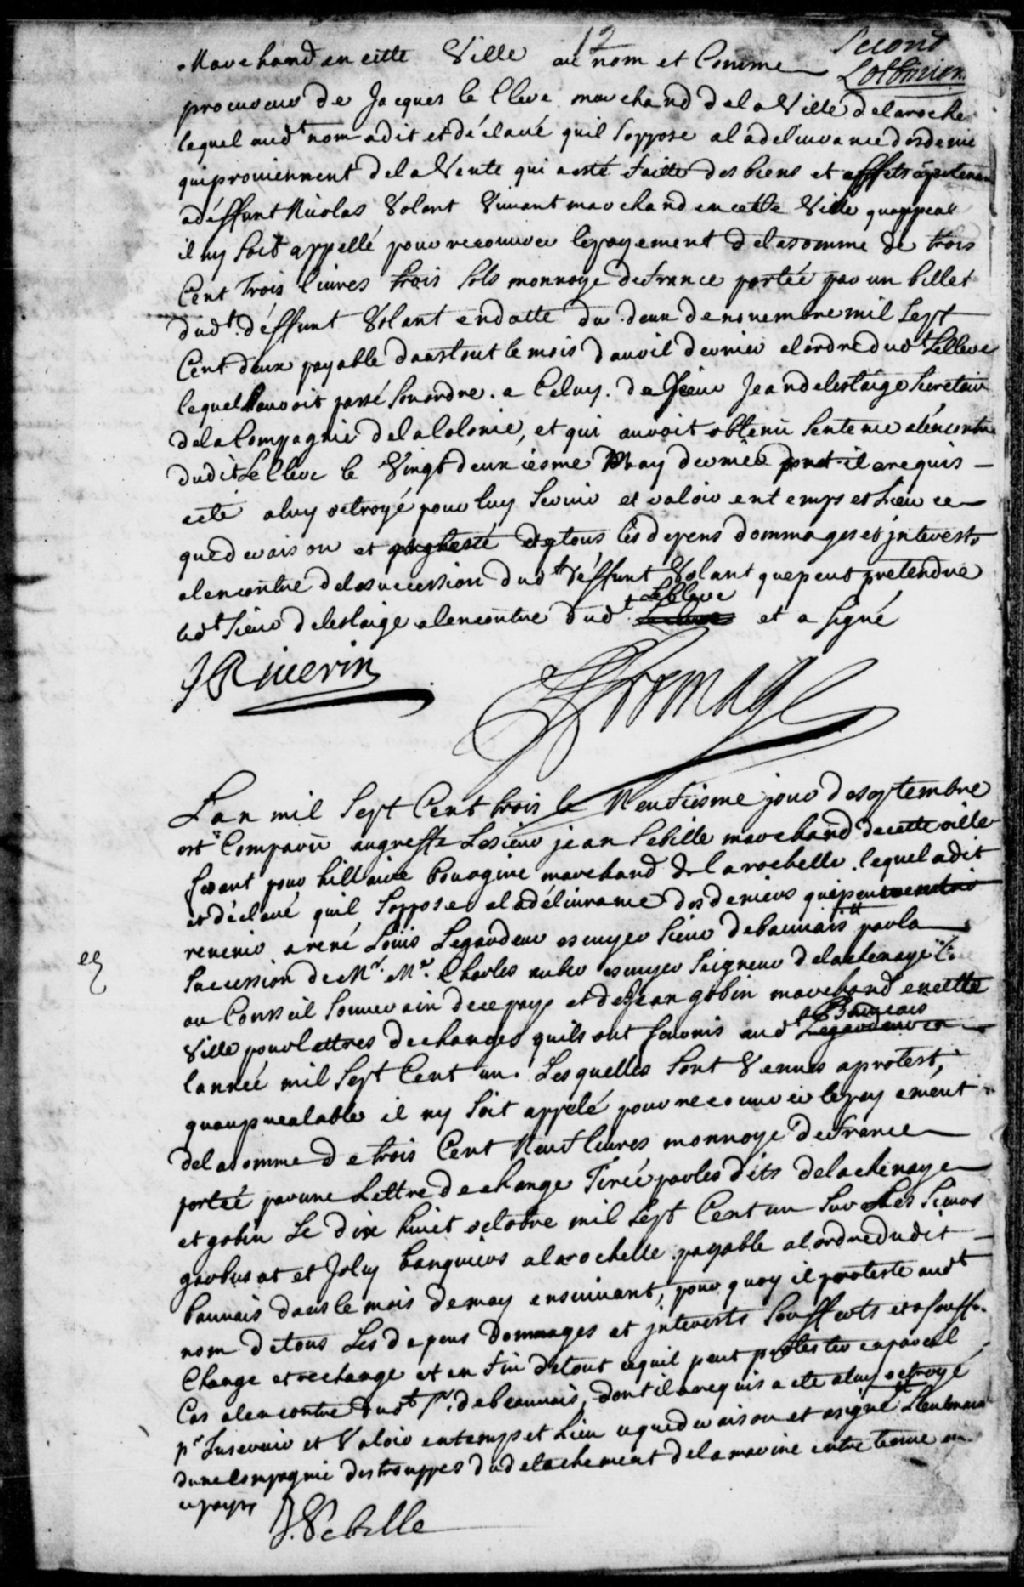 12
Second
Lotbinier
Marchand en cette Ville au nom et Comme
procureur de Jacques le Cleve marchand de la Ville de laroche
lequel aud.t nom a dit et déclaré quil Soppose a la délivrance des denie
qui proviennent de la Vente qui a esté faitte des biens et effets apartenan
a déffunt Nicolas Volant Vivant marchand en cette Ville quaupreal
il ny soit appellé pour recouvrer le payement de la somme de trois
Cent Trois livres trois sols monnoye de france portée par un billet
dud.t déffunt Volant en datte du deux de novembre mil Sept
Cent deux payable dans tout le mois d'avril dernier a lordre dud.t Le Cleve
lequel Lauroit passé son ordre a Celuy de Sieur Jean de lestage Secretair
de la Compagnie de la Colonie, et qui auroit obtenu Sentence alencontre
dudit Le Cleve le Vingt deuxiesme May dernier dont il a requis
acte a luy octroyé pour luy Servir et valoir en temps et Lieu ce
que de raison et proteste de tous les depens dommages et jnterests
alencontre de la succession dud.t déffunt Volant que peut pretendre
led.t Sieur de lestage alencontre dud.t Le Cleve et a signé
J Riverin
Fromage
L'an mil Sept Cent trois le Neufiesme jour de septembre
est Comparu au greffe Le sieur jean Sebille marchand de cette ville
faisant pour hillaire Bourgine marchand de la rochelle lequel a dit
et déclaré quil Soppose a la délivrance des deniers qui peuvent
revenir a rené Louis Legardeur escuyer Sieur de bauvais par la
Succession de M.r M.e Charles auber escuyer Seigneur de la chenaye C.er
au Conseil Souverain de ce pays et de Jean gobin marchand en cette
Ville pour lettres de changes quils ont fournis aud.t Bauvais en
lannée mil Sept Cent un Lesquelles Sont Venues a protest,
quauprealable il ny Soit appélé pour recouvrer le payement
de la somme de trois Cent Neuf livres monnoye de france
portée par une Lettre de change Tirée par les dits de la chenaye
et gobin Le dix huit octobre mil Sept Cent un Sur Les Sieurs
garbusat et Joly banquiers a la rochelle payable a lordre dudit
bauvais dans le mois de may ensuivant, pour quoy il proteste aud.t
nom de tous Les depens Dommages et jnterests Soufferts et a Souff.
Change et rechange et en fin de tout ce quil peut protester en pareil
Cas alencontre dud.t S.r de beauvais, dont il a requis acte a luy octroyé
p.r Luy servir et Valoir en temps et Lieu ce que de raison et a signé Lieutenant
dune Compagnie des trouppes du detachement de la marine entretenue en
ce pays
J. Sebille